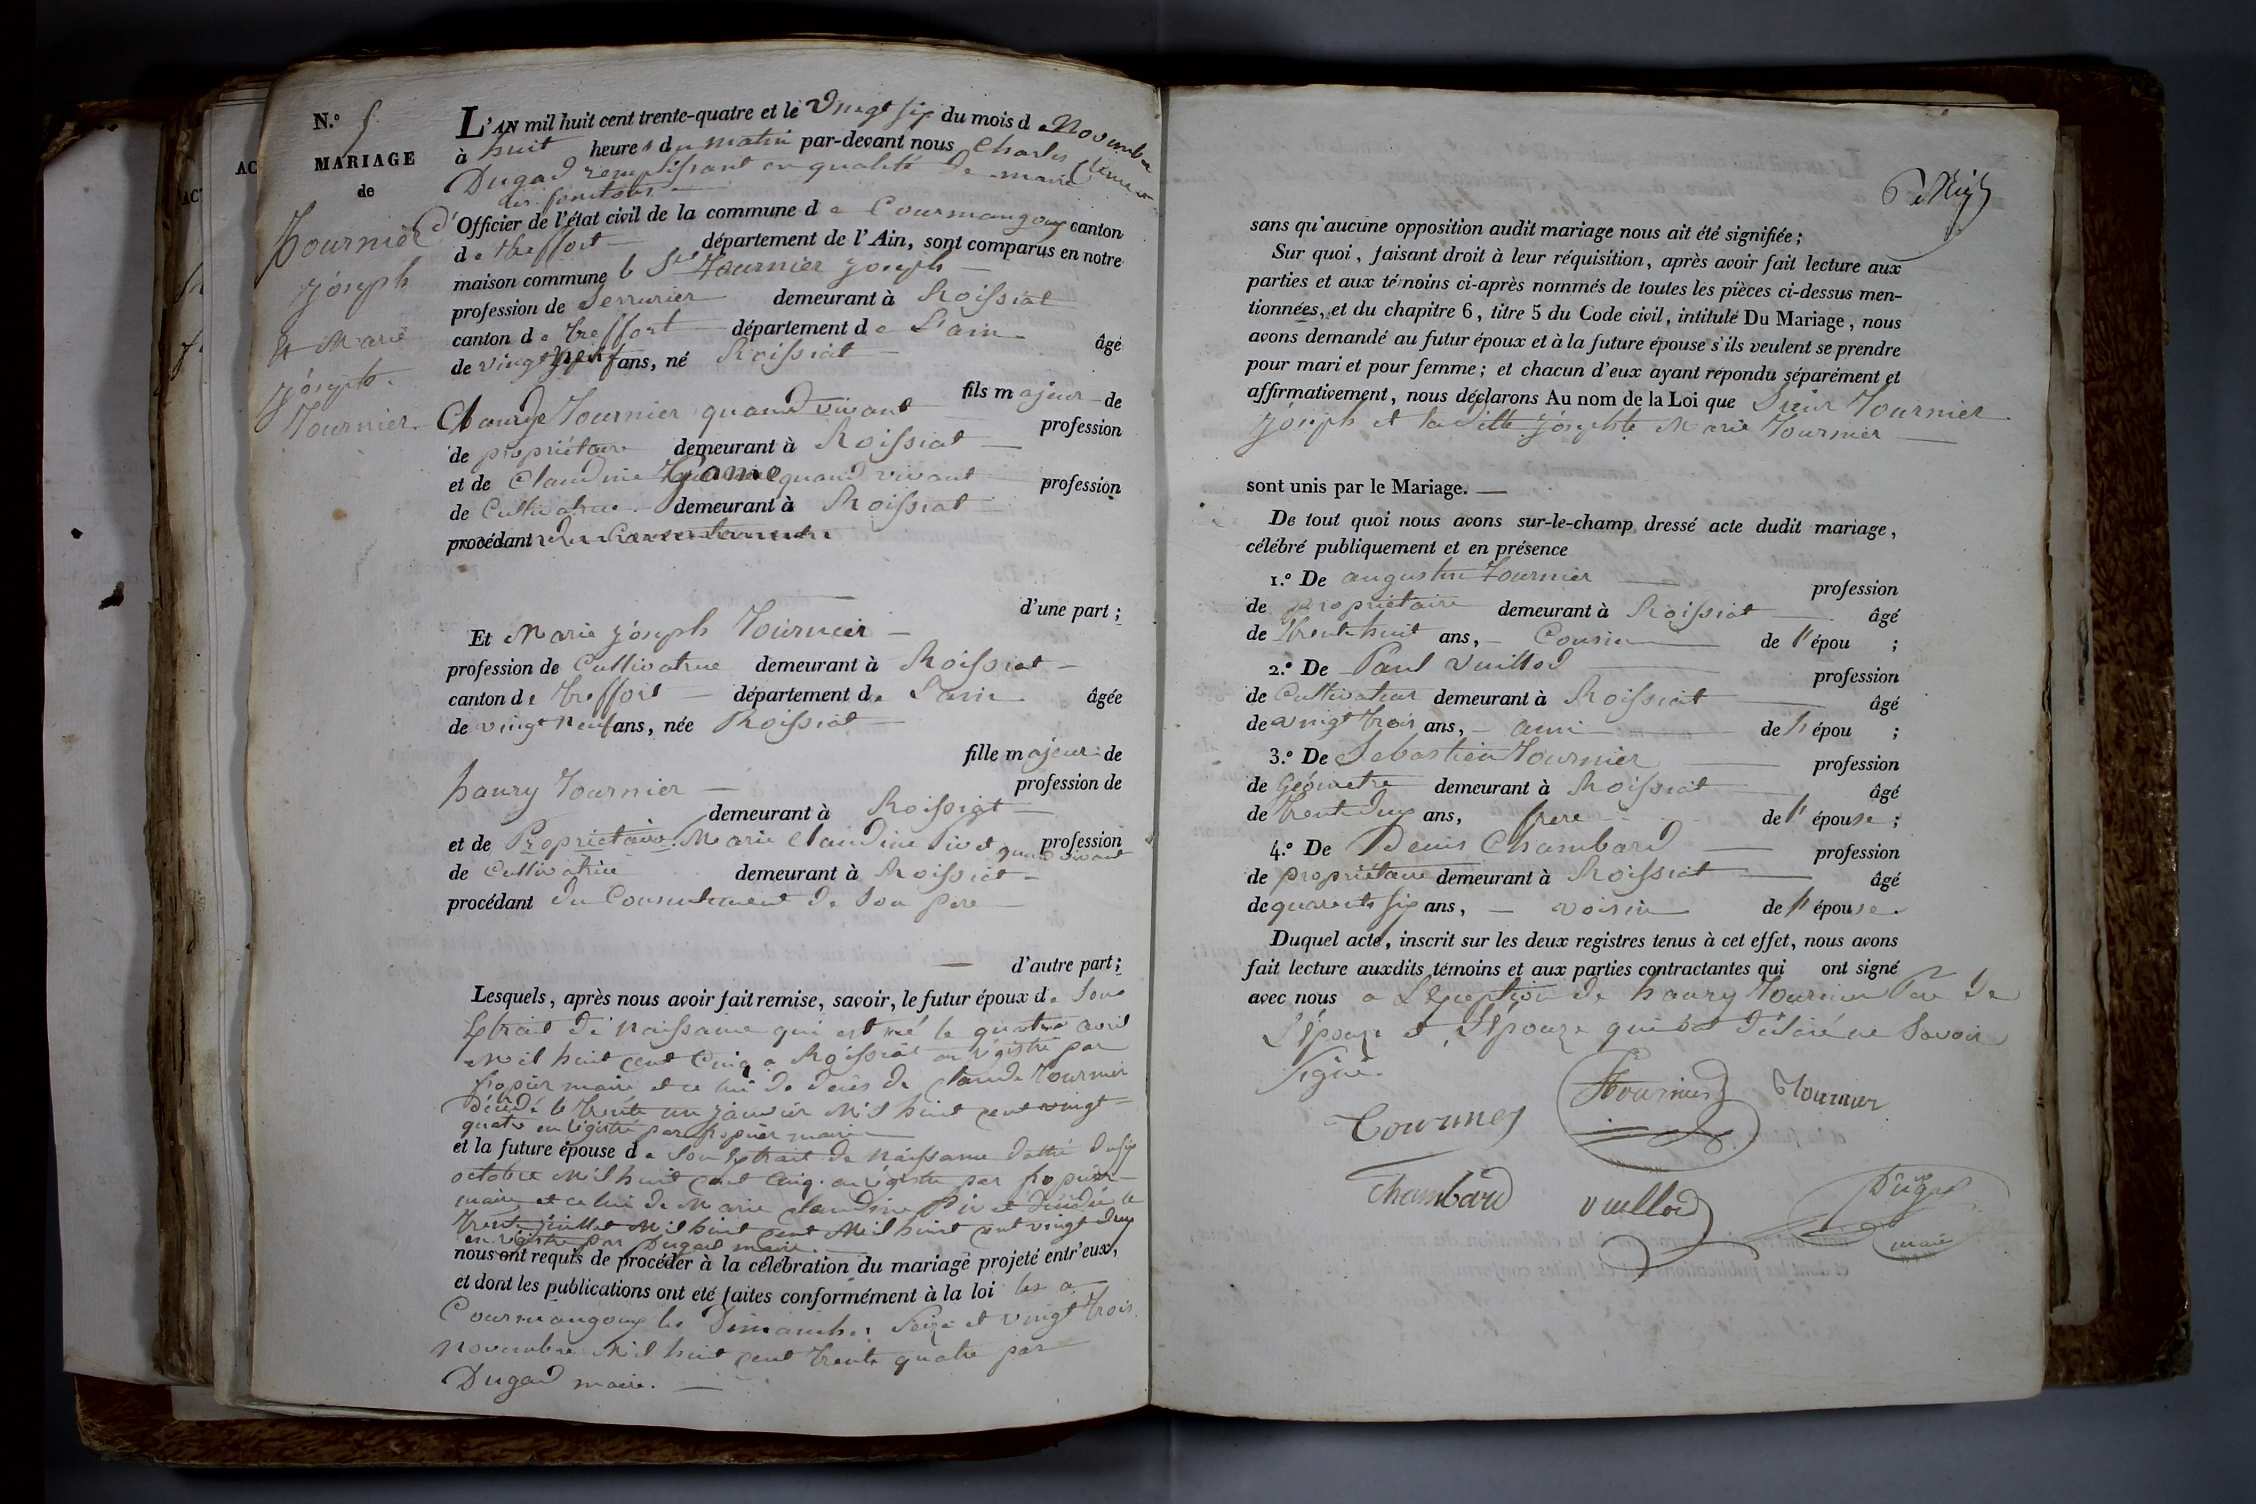 N.° 5
MARIAGE
de
Tournier
joseph
et Marie
josephte
Tournier
L'AN mil huit cent trente-quatre et le vingt six du mois de Novembre
à huit heures du matin par-devant nous Charles
Dugad remplissant en qualité de maire
les fonctions d'
Officier de l'état civil de la commune de Courmangoux canton
de treffort département de l'Ain, sont comparus en notre
maison commune le Sr Tournier joseph
profession de Serrurier demeurant à Roissiat
canton de treffort département de L'ain âgé
de vingt neuf ans, né Roissiat
fils majeur de
Claude Tournier quand vivant profession
de propriétaire demeurant à Roissiat
et de Claudine quand vivant profession
de Cultivatrice demeurant à Roissiat
procédant du Consentement
d'une part ;
Et Marie joseph Tournier
profession de Cultivatrice demeurant à Roissiat
canton de treffort département de L'ain âgée
de vingt neuf ans, née Roissiat
fille majeure de
haury Tournier profession de
demeurant à Roissiat
et de Propriétaire Marie Claudine Pivet quand vivant profession
de Cultivatrice demeurant à Roissiat
procédant du Consentement de Son père
d'autre part ;
Lesquels, après nous avoir fait remise, savoir, le futur époux de Son
Extrait de naissance qui est né le quatre avril
Mil huit cent Cinq a Roissiat enrégistré par
fropier maire et celui de décès de Claude Tournier
décédé le trente un janvier Mil huit cent vingt
quatre enrégistré par fropier maire
et la future épouse de Son Extrait de naissance datté du six
octobre Mil huit cent Cinq enrégistré par fropier
maire et celui de Marie Claudine Pivet décédée le
trente juillet Mil huit cent Mil huit cent vingt deux
enrégistré par Dugad maire
nous ont requis de procéder à la célébration du mariage projeté entr'eux,
et dont les publications ont été faites conformément à la loi les a
Courmangoux les Dimanches Seize et vingt trois
Novembre Mil huit cent trente quatre par
Dugad maire.
sans qu'aucune opposition audit mariage nous ait été signifiée ;
Sur quoi, faisant droit à leur réquisition, après avoir fait lecture aux
parties et aux témoins ci-après nommés de toutes les pièces ci-dessus men-
tionnées, et du chapitre 6, titre 5 du Code civil, intitulé Du Mariage, nous
avons demandé au futur époux et à la future épouse s'ils veulent se prendre
pour mari et pour femme ; et chacun d'eux ayant répondu séparément et
affirmativement, nous déclarons Au nom de la Loi que Sieur Tournier
joseph et la ditte josephte Marie Tournier
sont unis par le Mariage.
De tout quoi nous avons sur-le-champ dressé acte dudit mariage,
célébré publiquement et en présence
1.° De augustin Tournier profession
de propriétaire demeurant à Roissiat âgé
de trente huit ans, Cousin de l'épou ;
2.° De Paul Vuillod profession
de Cultivateur demeurant à Roissiat âgé
de vingt trois ans, ami de l'épou ;
3.° De Sebastien Tournier profession
de Géometre demeurant à Roissiat âgé
de trente deux ans, frere de l'épouse ;
4.° De Denis Chambard profession
de propriétaire demeurant à Roissiat âgé
de quarante six ans, voisin de l'épouse.
Duquel acte, inscrit sur les deux registres tenus à cet effet, nous avons
fait lecture auxdits témoins et aux parties contractantes qui ont signé
avec nous a L'Exception de haury Tournier Père de
L'épouze et L'épouze qui ont déclaré ne Savoir
Signé.
Tournier Tournier
Chambard vuillod Dugad
maire